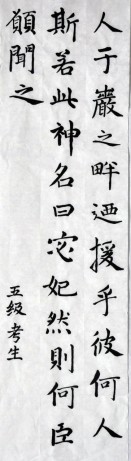 人于巖之畔迺援乎彼何人
斯若此神名曰宓妃然則何臣
願聞之
五级考生